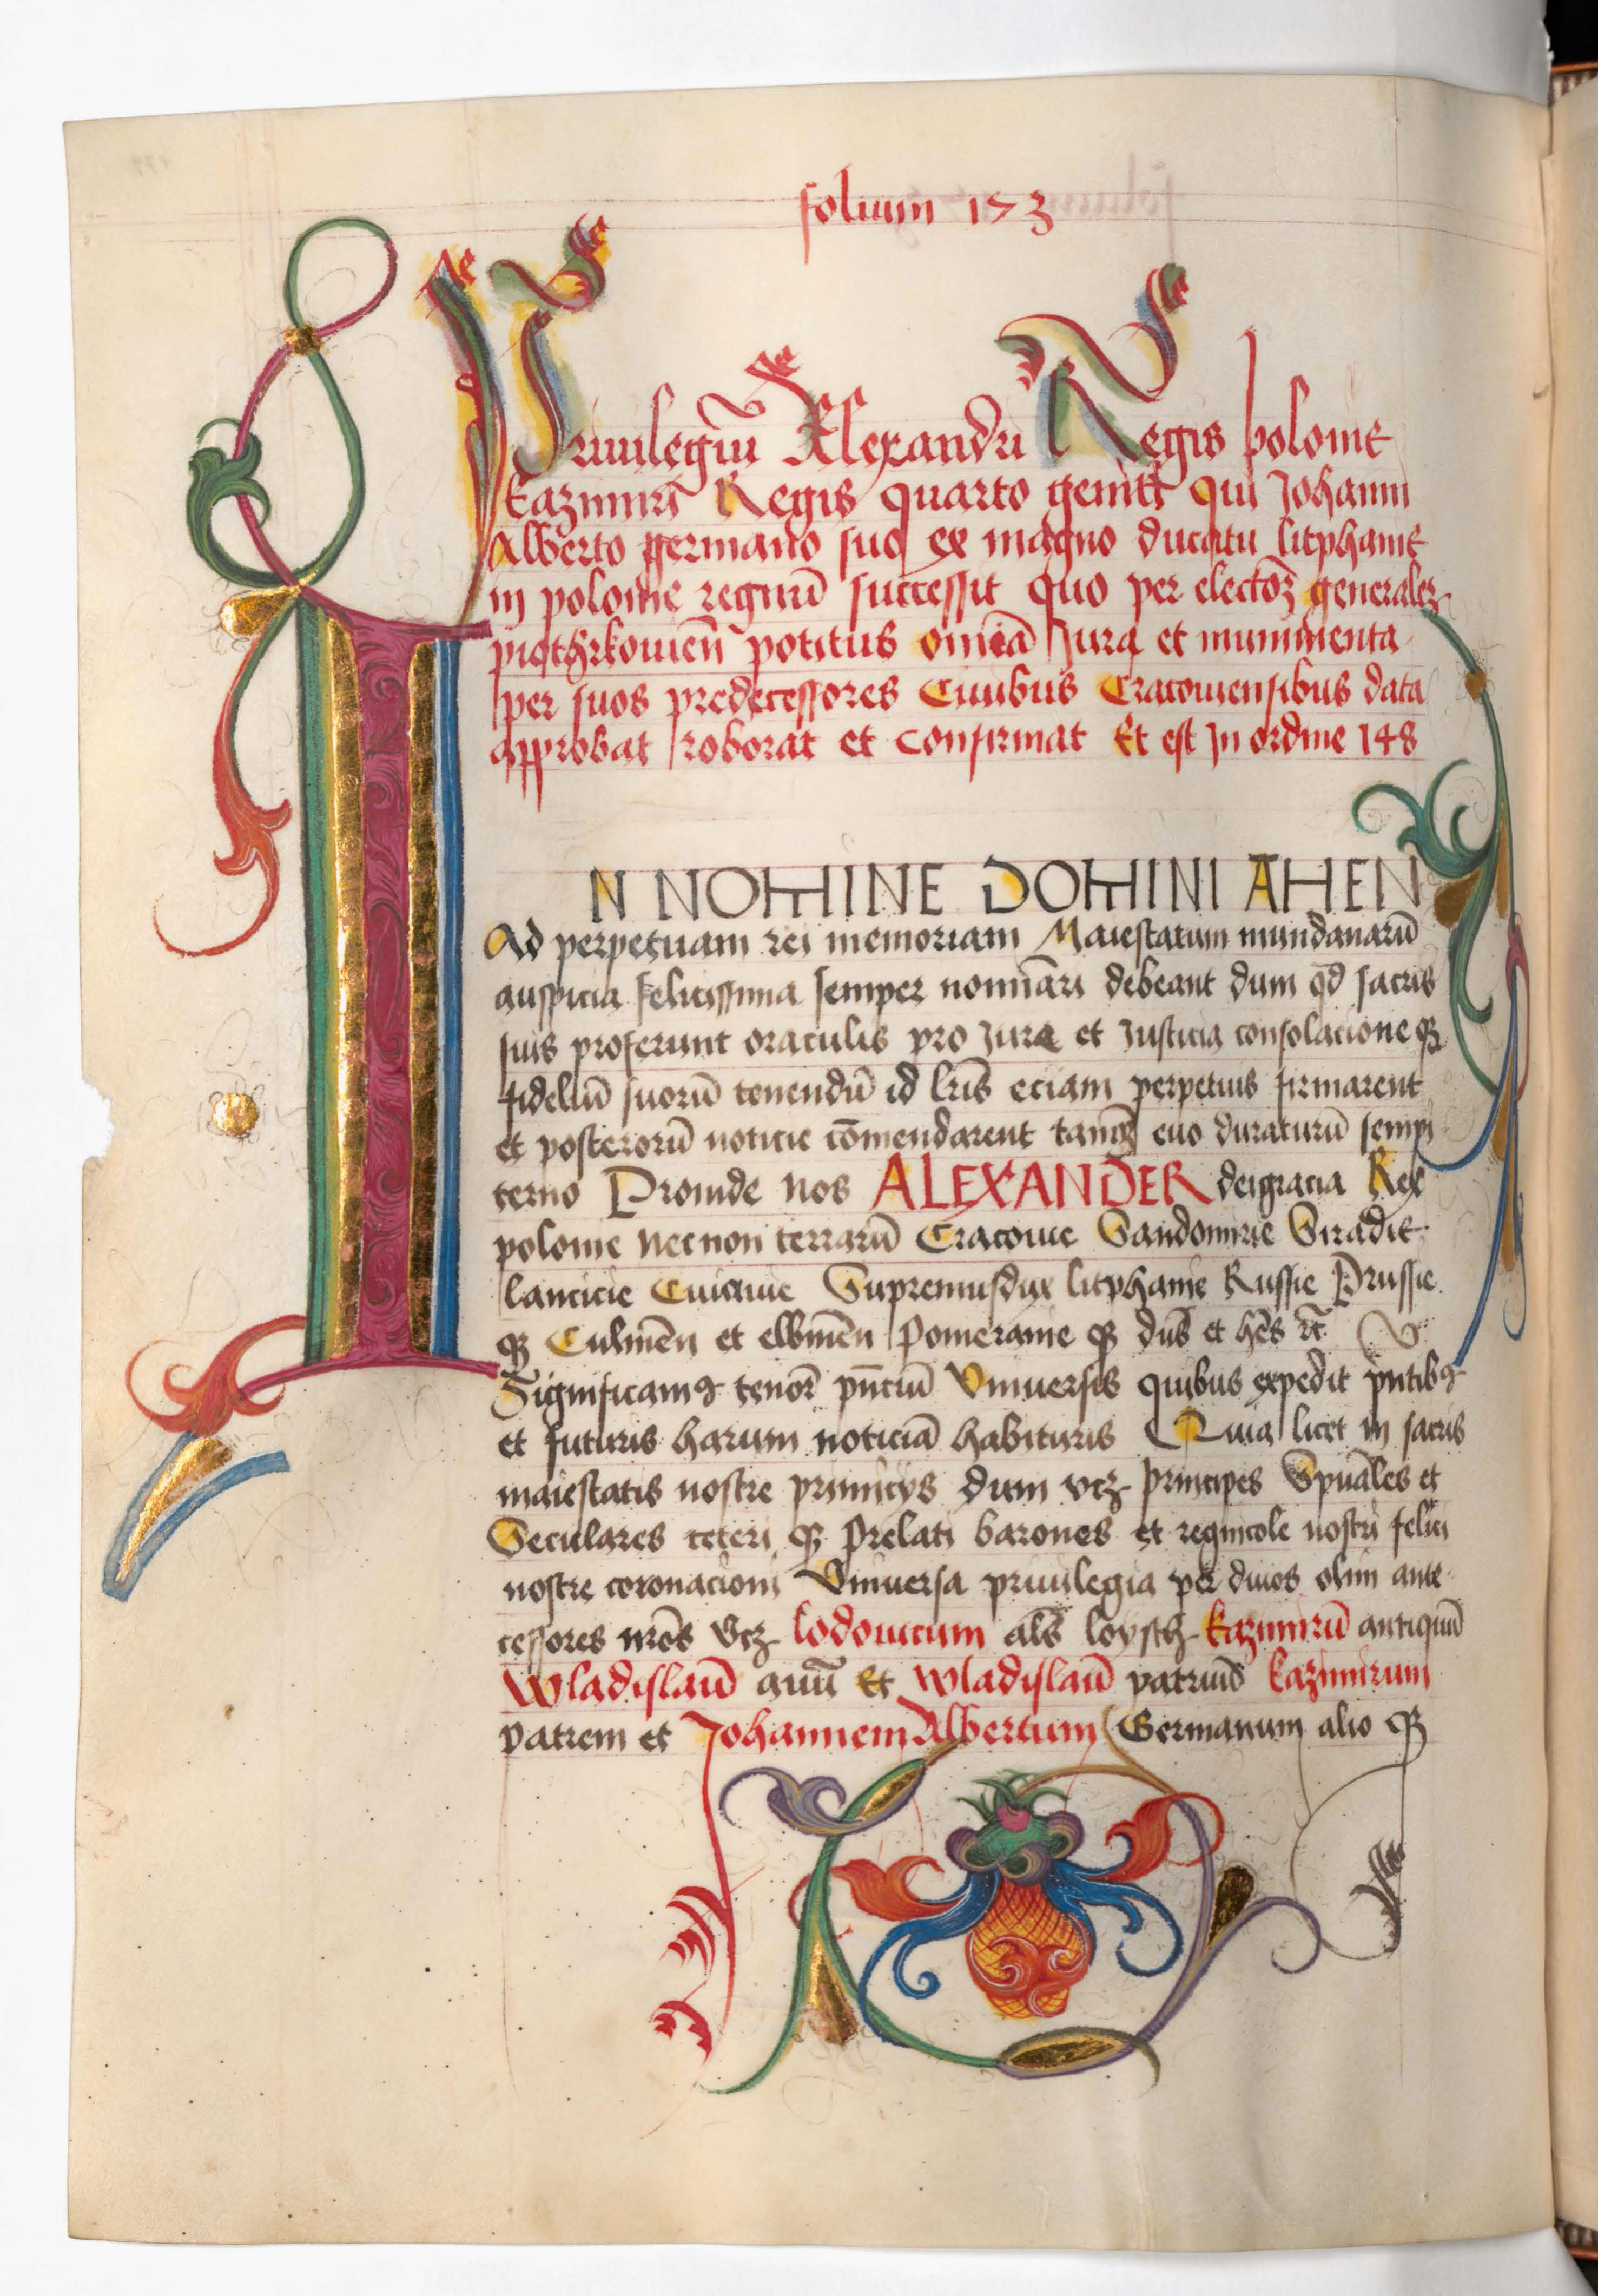 folium 173
Priuilegiū Alexandri Regis polonie
kazimiri Regis quarto geniti qui Johanni
Alberto germano suo ex magno ducatu litphanie
in polonie regnū successit quo per electoꝝ generalez
piothrkouien̄ potitus omīa Jura et munimenta
per suos predecessores Ciuibus Cracouiensibus data
approbat roborat et confirmat Et est In ordine 148
IN NOMINE DOMINI AMEN
Ad perpetuam rei memoriam Maiestatum mundanarū
auspicia felicissima semper nominari debeant dum qd̄ sacris
suis proferunt oraculis pro Jure et Justicia consolacioneqꝫ
fidelliū suorū tenendū id lr̄is eciam perpetuis firmarent
et posterorū noticie cōmendarent tanqꝫ euo duraturū sempi
terno Proinde nos ALEXANDER deigracia Rex
polonie necnon terrarū Cracouie Sandomirie Siradie
lancicie Cuiauie Supremusdux litphanie Russie Prussie
qꝫ Culmēn et elbinēn Pomeranie qꝫ dn̄s et hēs ꝛc̄
Significamꝰ tenorē pn̄ciū Vniuersis quibus expedit pn̄tibꝰ
et futuris harum noticiā habituris Quia licet in sacris
maiestatis nostre primicys dum vcꝫ principes Spuāles et
Seculares ceteri qꝫ prelati barones et regnicole nostri felici
nostre coronacioni Vniuersa priuilegia per diuos olim ante
cessores nr̄os vcꝫ lodouicum alš loysch kazimirū antiquū
Wladislaū auū Et Wladislaū patruū kazimirum
patrem et Johannem Albertum Germanum alio qꝫ